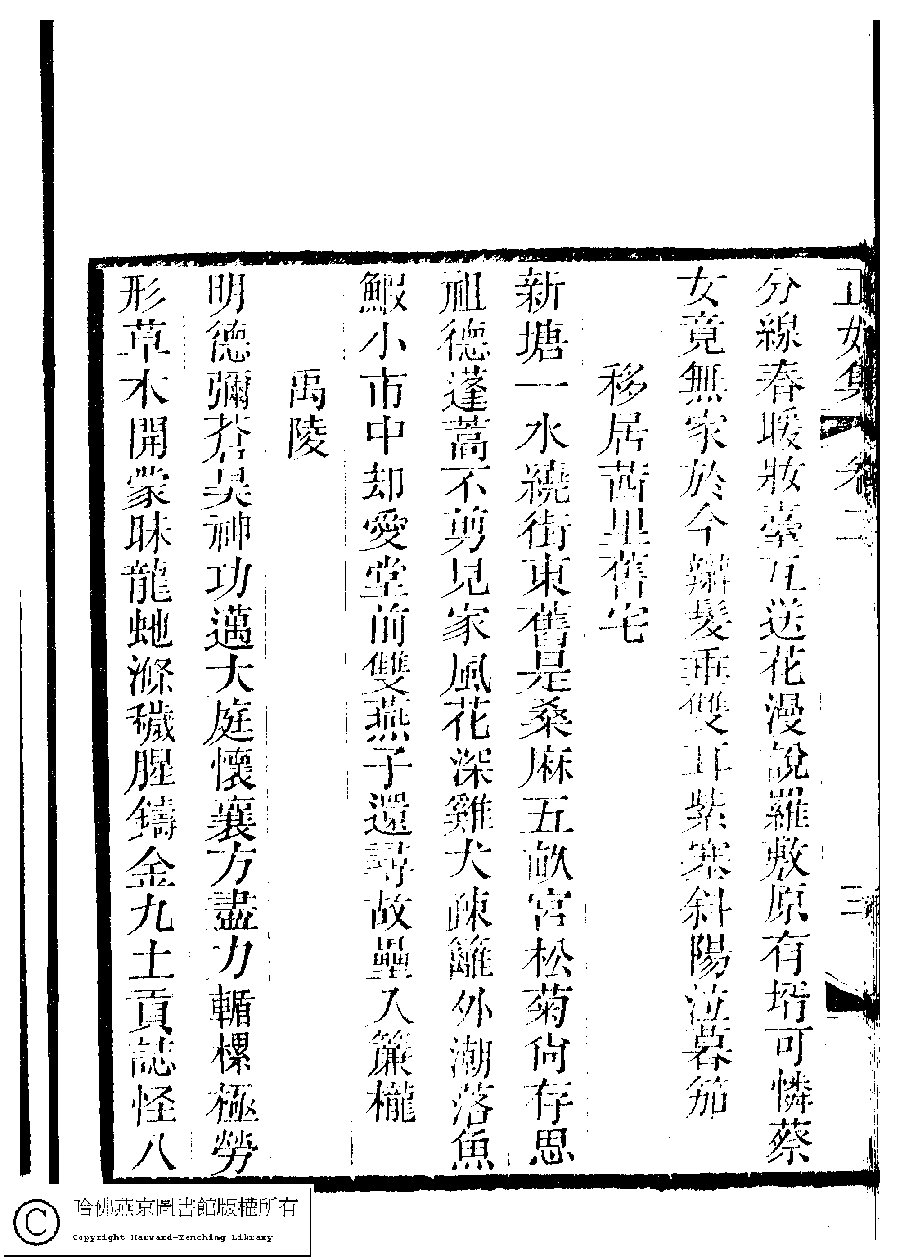 正始集 卷二 三
分線春暖妝臺互送花漫說羅敷原有壻可憐蔡
女竟無家於今辮髮垂雙耳紫塞斜陽泣暮笳
移居茜里舊宅
新塘一水繞街東舊是桑麻五畝宮松菊尙存思
祖德蓬蒿不剪見家風花深雞犬疎籬外潮落魚
鰕小市中却愛堂前雙燕子還尋故壘入簾櫳
禹陵
明德彌蒼昊神功邁大庭懷襄方盡力輴樏極勞
形草木開蒙昧龍虵滌穢腥鑄金九土貢誌怪八
哈佛燕京圖書館版權所有
Copyright Harvard-Yenching Library